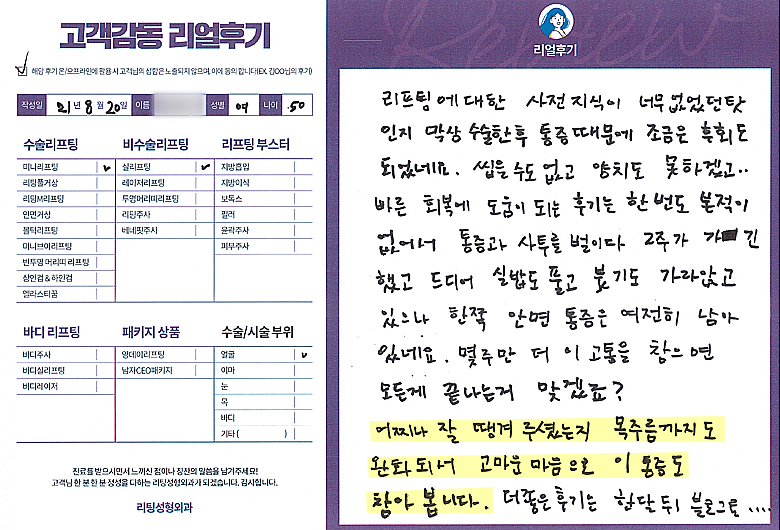 고객감동 리얼후기
해당 후기 온/오프라인에 활용 시 고객님의 성함은 노출되지 않으며, 이에 동의 합니다(EX. 김OO님의 후기)
작성일 21년 8월 20일 이름 성별 여 나이 50
수술리프팅
미니리프팅
리팅풀거상
리팅M리프팅
안면거상
볼턱리프팅
미니브이리프팅
반투명 머리띠 리프팅
상안검 & 하안검
엘라스티꿈
비수술리프팅
실리프팅
레이저리프팅
투명머리띠리프팅
리팅주사
베네핏주사
리프팅 부스터
지방흡입
지방이식
보톡스
필러
윤곽주사
피부주사
바디 리프팅
바디주사
바디실리프팅
바디레이저
패키지 상품
원데이리프팅
남자CEO패키지
수술/시술 부위
얼굴
이마
눈
목
바디
기타 ( )
진료를 받으시면서 느끼신 점이나 칭찬의 말씀을 남겨주세요!
고객님 한 분 한 분 정성을 다하는 리팅성형외과가 되겠습니다. 감사합니다.
리팅성형외과
Review
리얼후기
리프팅에 대한 사전지식이 너무없었던탓
인지 막상 수술한후 통증때문에 조금은 후회도
되었네요. 씹을수도 없고 양치도 못하겠고..
빠른 회복에 도움이 되는 후기는 한번도 본적이
없어서 통증과 사투를 벌이다 2주가 가긴
했고 드디어 실밥도 풀고 붓기도 가라앉고
있으나 한쪽 안면 통증은 여전히 남아
있네요. 몇주만 더 이 고통을 참으면
모든게 끝나는거 맞겠죠?
어찌나 잘 땡겨 주셨는지 목주름까지도
완화되서 고마운 마음으로 이 통증도
참아 봅니다. 더좋은후기는 한달 뒤 블로그로 ....